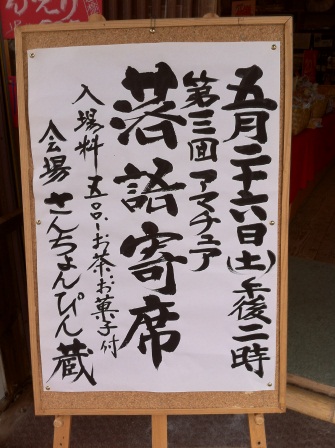 五月二十六日(土)午後二時
第三回アマチュア
落語寄席
入場料 五百円 お茶、お菓子付
会場 さんちょんぴん蔵